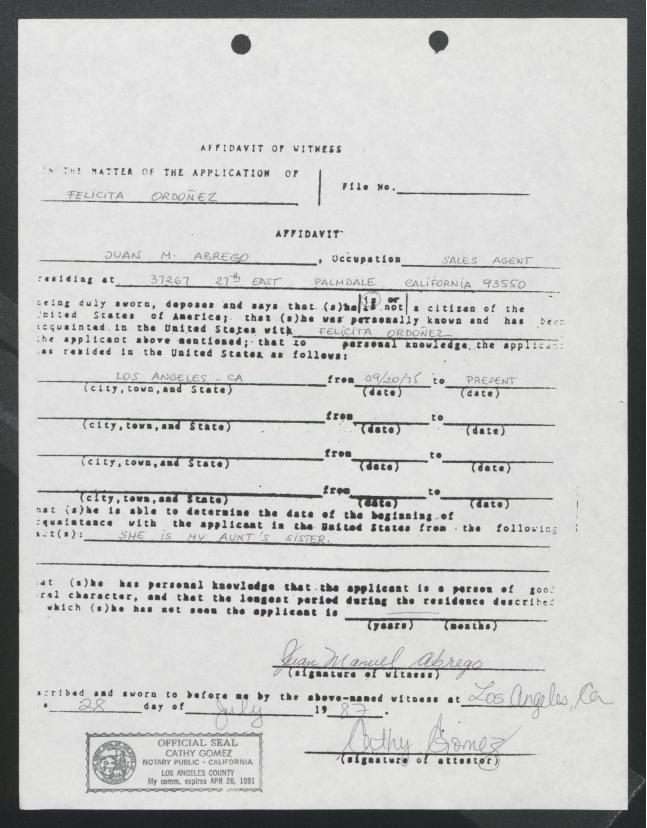 AFFIDAVIT OF WITNESS
THE MATTER OF THE APPLICATION OF
FELICITA ORDOÑEZ
File No.
AFFIDAVIT
JUAN M. ABREGO, Occupation SALES AGENT
residing at 37267 27th EAST PALMDALE CALIFORNIA 93550
being duly sworn, deposes and says that (s)he is or is not a citizen of the
United States of America; that (s)he was personally known and has been
acquainted in the United States with FELICITA ORDOÑEZ
the applicant above mentioned; that to personal knowledge, the applicant
as resided in the United States as follows:
LOS ANGELES - CA from 09/20/75 to PRESENT
(city,town,and State) (date) (date)
from to
(city,town,and State) (date) (date)
from to
(city,town,and State) (date) (date)
from to
(city,town,and State) (date) (date)
hat (s)he is able to determine the date of the beginning of
cquaintance with the applicant in the United States from the following
act(s): SHE IS MY AUNT'S SISTER.
at (s)he has personal knowledge that the applicant is a person of good
ral character, and that the longest period during the residence described
which (s)he has not seen the applicant is
(years) (months)
Juan Manuel Abrego
(signature of witness)
scribed and sworn to before me by the above-named witness at Los Angeles, Ca
s 28 day of July 1987.
Cathy Gomez
(signature of attestor)
OFFICIAL SEAL
CATHY GOMEZ
NOTARY PUBLIC - CALIFORNIA
LOS ANGELES COUNTY
My comm. expires APR 26, 1991